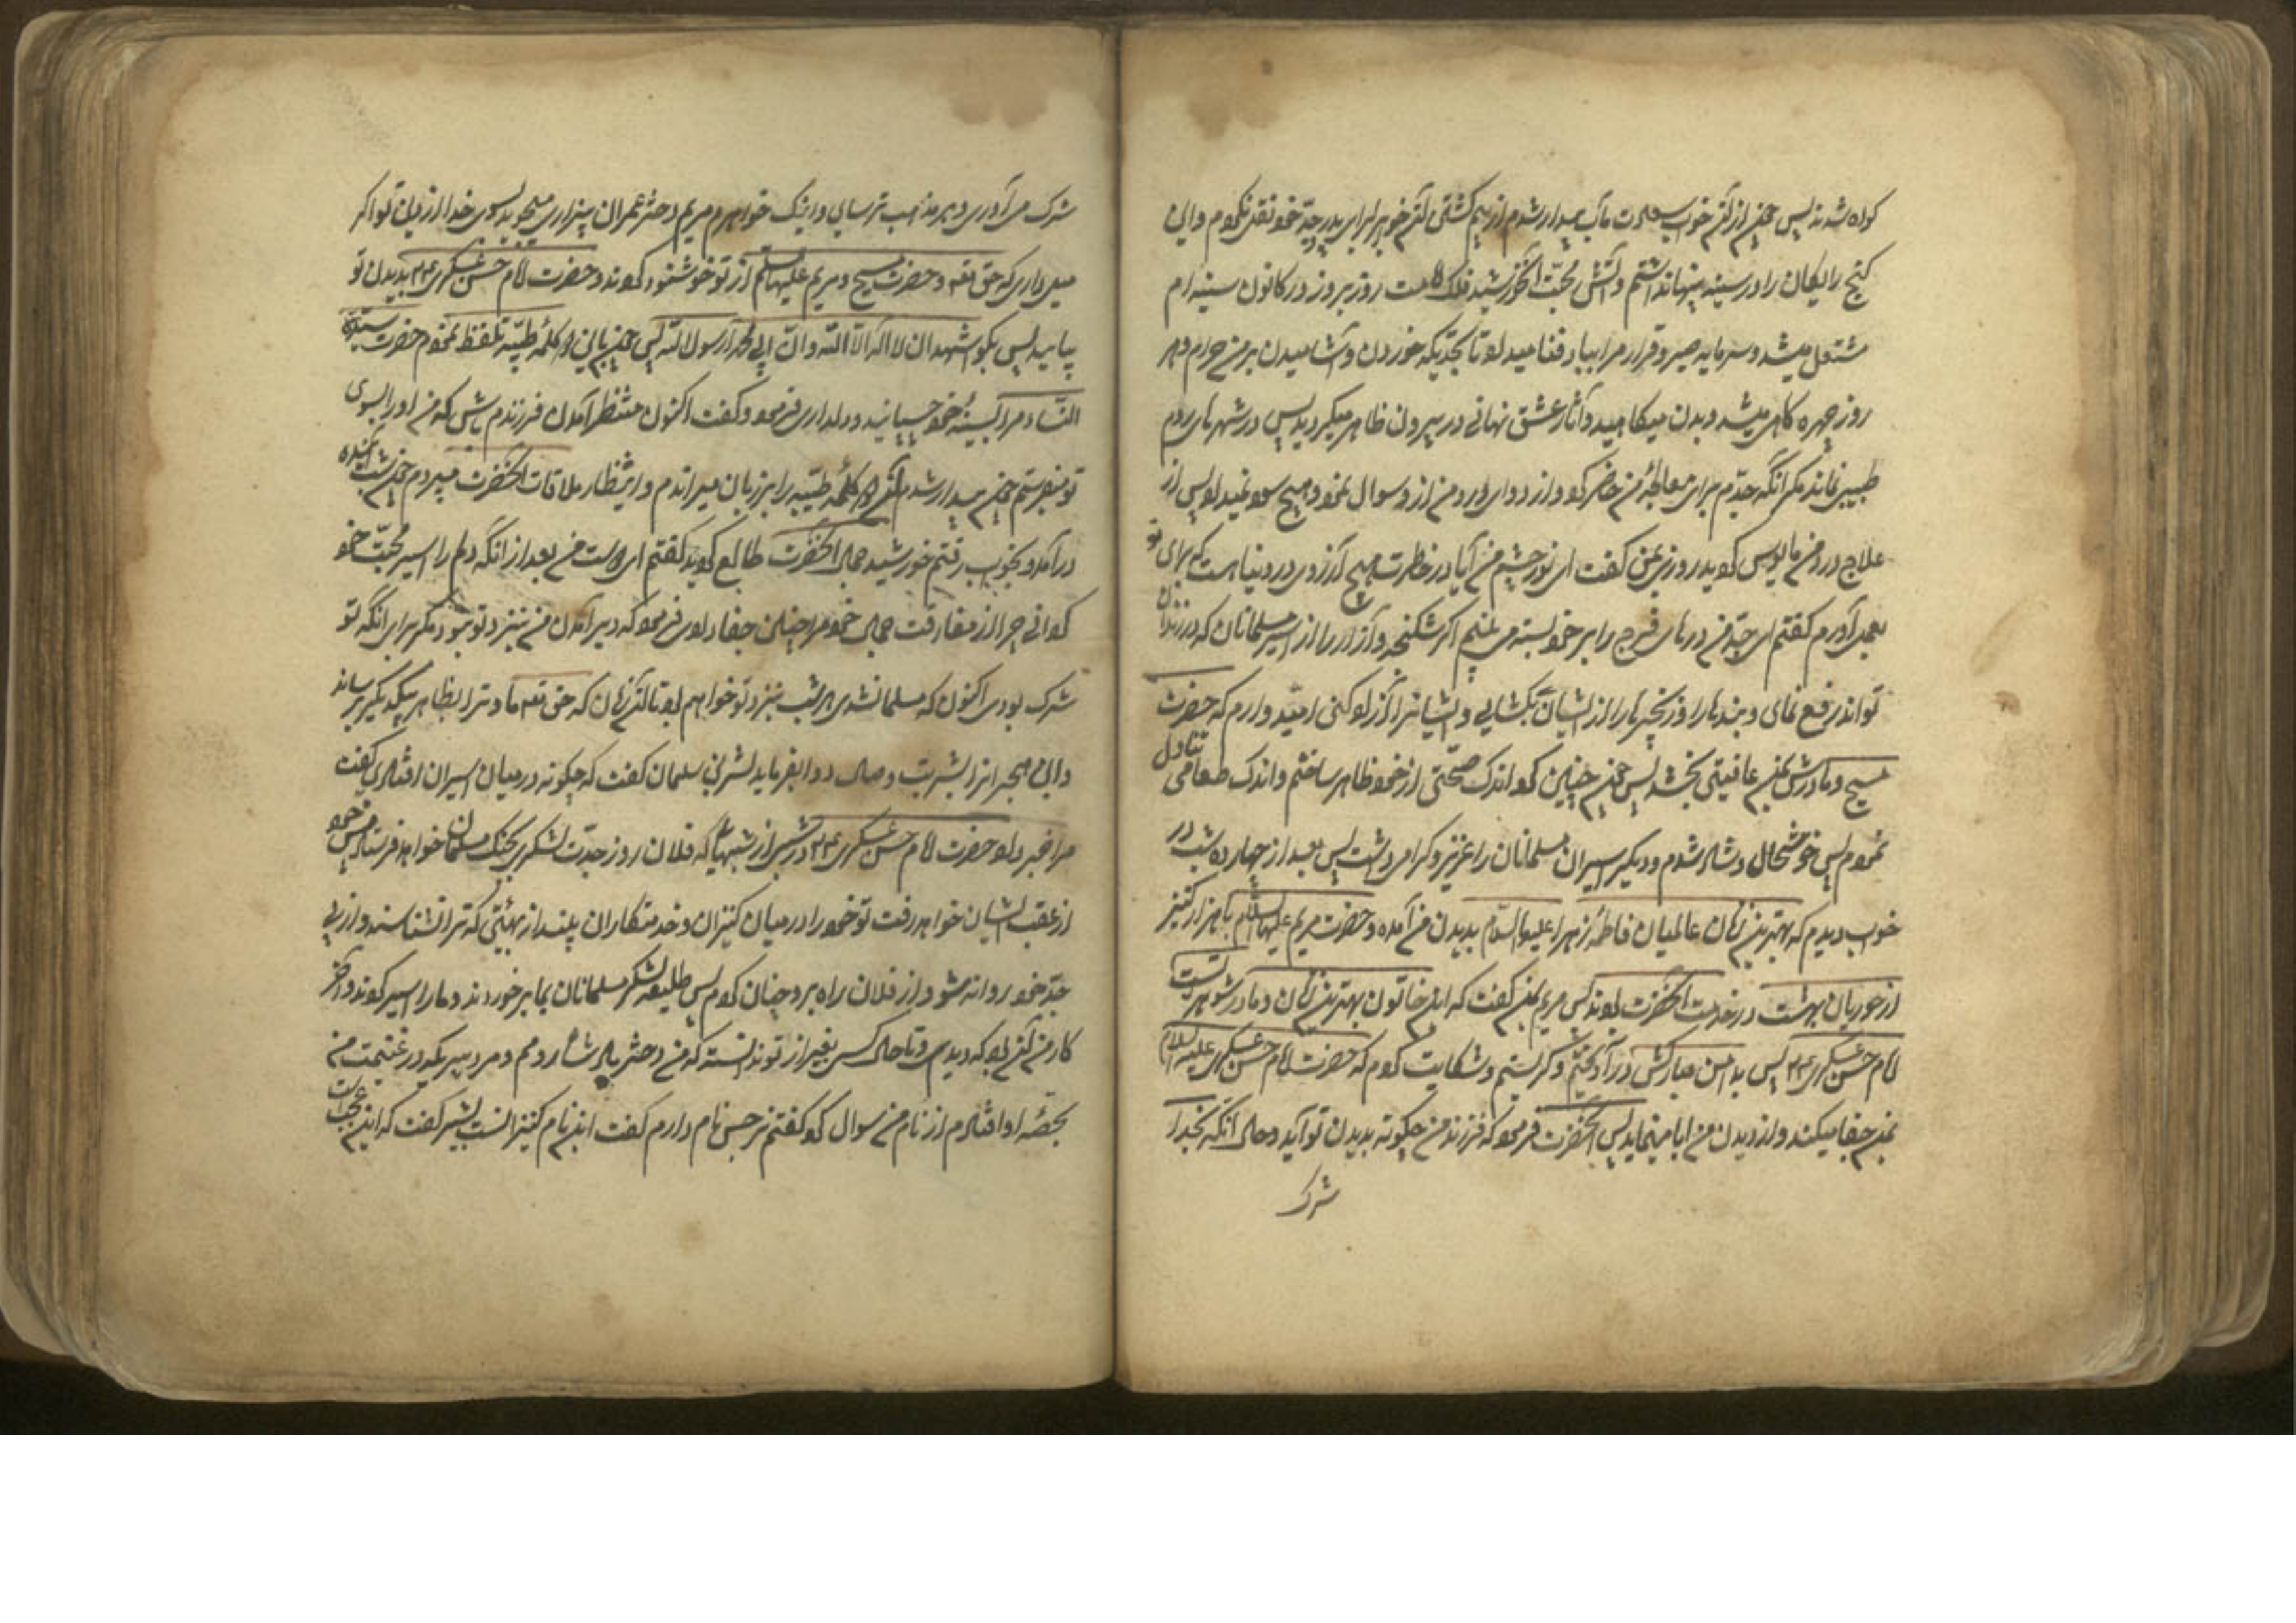 کواه شدند پس چون از آن خواب سعادت مآب بیدار شدم از بیم کشتن آن خواب را برای پدر و جد خود نقل نکردم و این
کنج رایکان را در سینه پنهان داشتم و آتش محبت آن خورشید فلک امامت روز بروز در کانون سینه ام
مشتعل میشد و سرمایه صبر و قرار مرا بباد فنا میداد تا بحدیکه خوردن و آشامیدن بر من حرام و هر
روز چهره کاهی میشد و بدن میکاهید و آثار عشق نهانی در بیرون ظاهر میکردید پس در شهرهای روم
طبیبی نماند مکر آنکه جدم برای معالجه من حاضر کرد و از دوای درد من از او سوال نمود و هیچ سود نمیداد پس از
علاج درد من مایوس کردید روزی بمن کفت ای نور چشم من آیا در خاطرت هیچ آرزوی در دنیا هست که برای تو
بعمل آورم کفتم ای جد من درهای فرج را بر خود بسته می بینم اکر شکنجه و آزار را از اسیر مسلمانان که در زندان
تواند رفع نمای و بندها را و زنجیرها را از ایشان بکشایی و ایشانرا آزاد کنی امید وارم که حضرت
مسیح و مادرش بمن عافیتی بخشند پس چون چنین کرد اندک صحتی از خود ظاهر ساختم و اندک طعامی تناول
نمودم پس خوشحال و شاد شد و دیکر اسیران مسلمانان را عزیز و کرامی داشت پس بعد از چهارده شب در
خواب دیدم که بهترین زنان عالمیان فاطمه زهرا علیها السلام بدیدن من آمده و حضرت مریم علیها السلام با هزار کنیز
از حوریان بهشت در خدمت آنحضرت بودند پس مریم بمن کفت که این خاتون بهترین زنان و مادر شوهر تست
امام حسن عسکری پس بدامن مبارکش درآویختم و کریستم و شکایت کردم که حضرت امام حسن عسکری علیه السلام
بمن جفا میکند و از دیدن من ابا مینماید پس آنحضرت فرمود که فرزند من چکونه بدیدن تو آید و حال آنکه بخدا
شرک
شرک می آوری و بر مذهب ترسایی و اینک خواهرم مریم دختر عمران بیزاری میجوید بسوی خدا از دین تو اکر
میل داری که حق تعالی و حضرت مسیح و مریم علیهما السلم از تو خوشنود کردند و حضرت امام حسن عسکری بدیدن تو
بیاید پس بکو اشهد ان لا اله الا الله و ان ابی محمدا رسول الله پس چون باین کلمه طیبه تلفظ نمودم حضرت سیدة
النساء مرا بسینه خود چسبانید و دلداری فرمود و کفت اکنون منتظر آمدن فرزندم باش که من او را بسوی
تو میفرستم چون بیدار شدم آن کلمه طیبه را بر زبان میراندم و انتظار ملاقات آنحضرت میبردم چون شب آینده
درآمد و بخواب رفتم خورشید جمال آنحضرت طالع کردید کفتم ای دوست من بعد از آنکه دلم را اسیر محبت خود
کردانی چرا از مفارقت جمال خود مرا چنین جفا دادی فرمود که دیر آمدن من بنزد تو نبود مکر برای آنکه تو
شرک بودی اکنون که مسلمان شدی هر شب بنزد تو خواهم بود تا آن زمان که حق تعالی ما و ترا بظاهر بیکدیکر برساند
و این هجر انرا بشربت وصال دوا بفرماید بشر بن سلیمان کفت که چکونه در میان اسیران افتادی کفت
مرا خبر داد حضرت امام حسن عسکری در شبی از شبها که فلان روز جدت لشکری بجنک مسلمانان خواهد فرستاد پس خود
از عقب ایشان خواهد رفت تو خود را در میان کنیزان و خدمتکاران بیند از بهیئتی که ترا نشناسند و از پی
جد خود روانه شو و از فلان راه برو چنان کردم پس طلیعه لشکر مسلمانان بما برخوردند و ما را اسیر کردند و آخر
کار من آن بود که دیدی و تا حال کسی بغیر از تو ندانسته که من دختر پادشاه رومم و مرد پیریکه در غنیمت من
بحصه او افتادم از نام من سوال کرد کفتم نرجس نام دارم کفت این نام کنیزانست بشر کفت که این عجبست